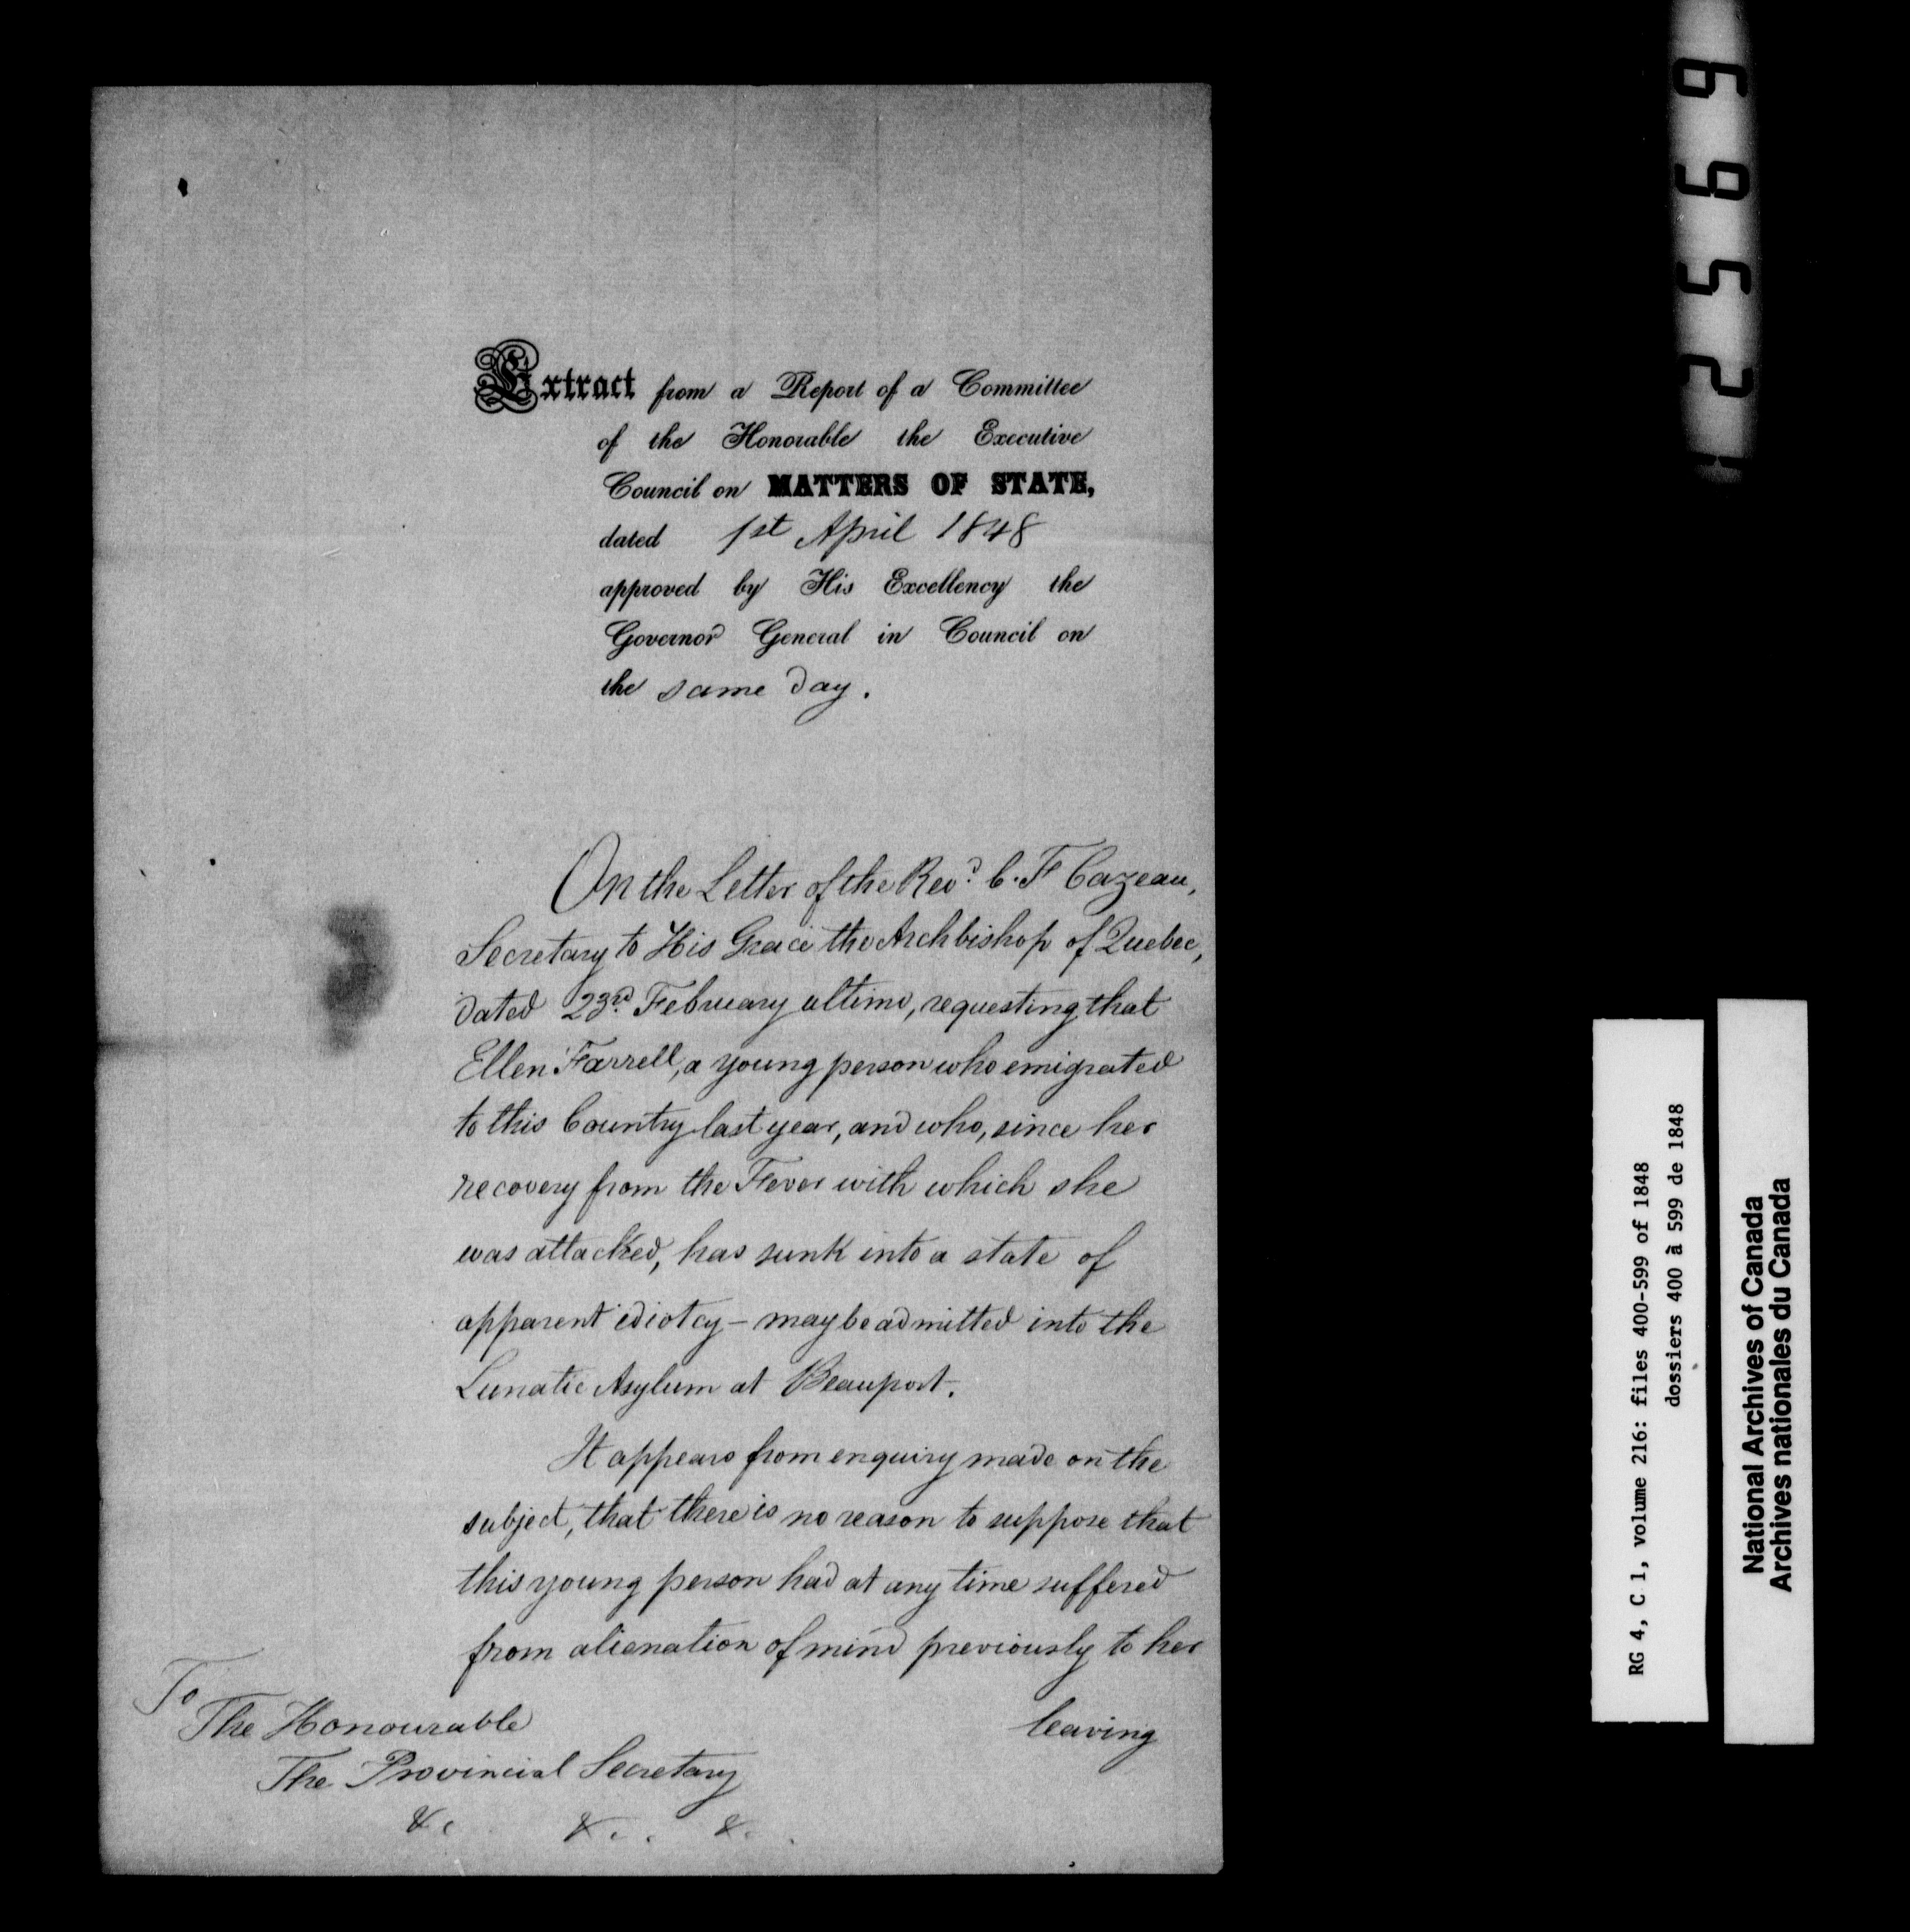 Extract from a Report of a Committee
of the Honorable the Executive
Council on MATTERS OF STATE,
dated 1st April 1848
approved by His Excellency the
Governor General in Council on
the same day.
On the Letter of the Revd. C. F Cazeau,
Secretary to His Grace the Archbishop of Quebec,
dated 23rd. February ultimo, requesting that
Ellen Farrell, a young person who emigrated
to this Country last year, and who, since her
recovery from the Fever with which she
was attacked, has sunk into a state of
apparent idiotcy – may be admitted into the
Lunatic Asylum at Beauport.
It appears from enquiry made on the
subject, that there is no reason to suppose that
this young person had at any time suffered
from alienation of mind previously to her
leaving
To
The Honourable
The Provincial Secretary
&c &c. &c.
2569
RG 4, C 1, volume 216: files 400-599 of 1848
dossiers 400 à 599 de 1848
National Archives of Canada
Archives nationales du Canada